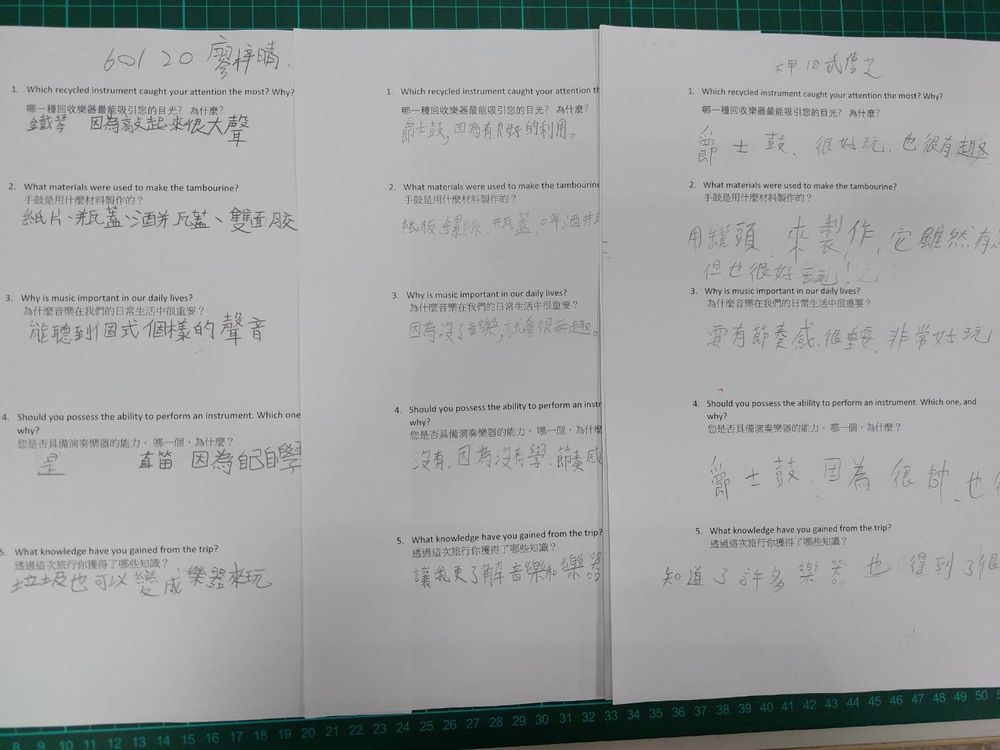 601 20 廖梓晴
1. Which recycled instrument caught your attention the most? Why?
哪一種回收樂器最能吸引您的目光? 為什麼?
鐵琴 因為敲起來很大聲
2. What materials were used to make the tambourine?
手鼓是用什麼材料製作的?
紙片、瓶蓋、酒瓶瓦蓋、雙面膠
3. Why is music important in our daily lives?
為什麼音樂在我們的日常生活中很重要?
能聽到各式個樣的聲音
4. Should you possess the ability to perform an instrument. Which one
why?
您是否具備演奏樂器的能力。 哪一個,為什麼?
是 直笛 因為自己自學
5. What knowledge have you gained from the trip?
透過這次旅行你獲得了哪些知識?
垃圾也可以變成樂器來玩
1. Which recycled instrument caught your attention th
哪一種回收樂器最能吸引您的目光? 為什麼?
爵士鼓,因為有良好的利用。
2. What materials were used to make the tambourin
手鼓是用什麼材料製作的?
紙板、螺絲、瓶蓋、
3. Why is music important in our daily lives?
為什麼音樂在我們的日常生活中很重要?
因為沒了音樂,就會很無趣。
4. Should you possess the ability to perform an instr
why?
您是否具備演奏樂器的能力。 哪一個,為什麼
沒有,因為沒有學,節奏感
5. What knowledge have you gained from the trip?
透過這次旅行你獲得了哪些知識?
讓我更了解音樂和樂器
六甲 18
1. Which recycled instrument caught your attention the most? Why?
哪一種回收樂器最能吸引您的目光? 為什麼?
爵士鼓、很好玩、也很有趣
2. What materials were used to make the tambourine?
手鼓是用什麼材料製作的?
用罐頭、來製作,它雖然有
但也很好玩!
3. Why is music important in our daily lives?
為什麼音樂在我們的日常生活中很重要?
要有節奏感、很重要、非常好玩
4. Should you possess the ability to perform an instrument. Which one, and
why?
您是否具備演奏樂器的能力。 哪一個,為什麼?
爵士鼓、因為很帥、也
5. What knowledge have you gained from the trip?
透過這次旅行你獲得了哪些知識?
知道了許多樂器 也得到了很
8 9 10 11 12 13 14 15 16 17 18 19 20 21 22 23 24 25 26 27 28 29 30 31 32 33 34 35 36 37 38 39 40 41 42 43 44 45 46 47 48 49 50 51